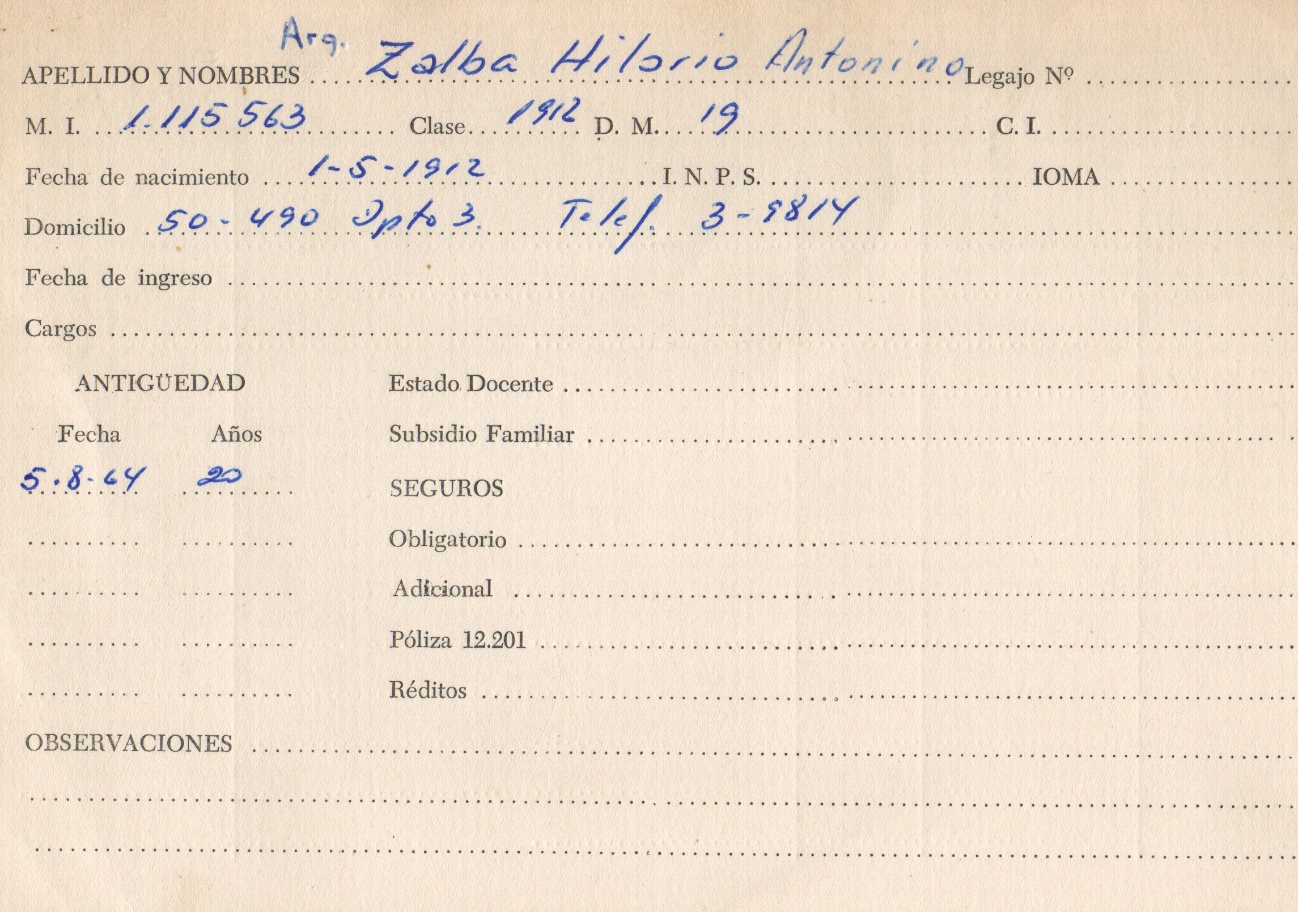 Arq.
APELLIDO Y NOMBRES Zalba Hilario Antonino Legajo Nº
M. I. 1.115563 Clase 1912 D. M. 19 C. I.
Fecha de nacimiento 1-5-1912 I. N. P. S. IOMA
Domicilio 50-490 Dpto 3. Telef. 3-9814
Fecha de ingreso
Cargos
ANTIGÜEDAD Estado Docente
Fecha Años Subsidio Familiar
5.8-64 20 SEGUROS
Obligatorio
Adicional
Póliza 12.201
Réditos
OBSERVACIONES